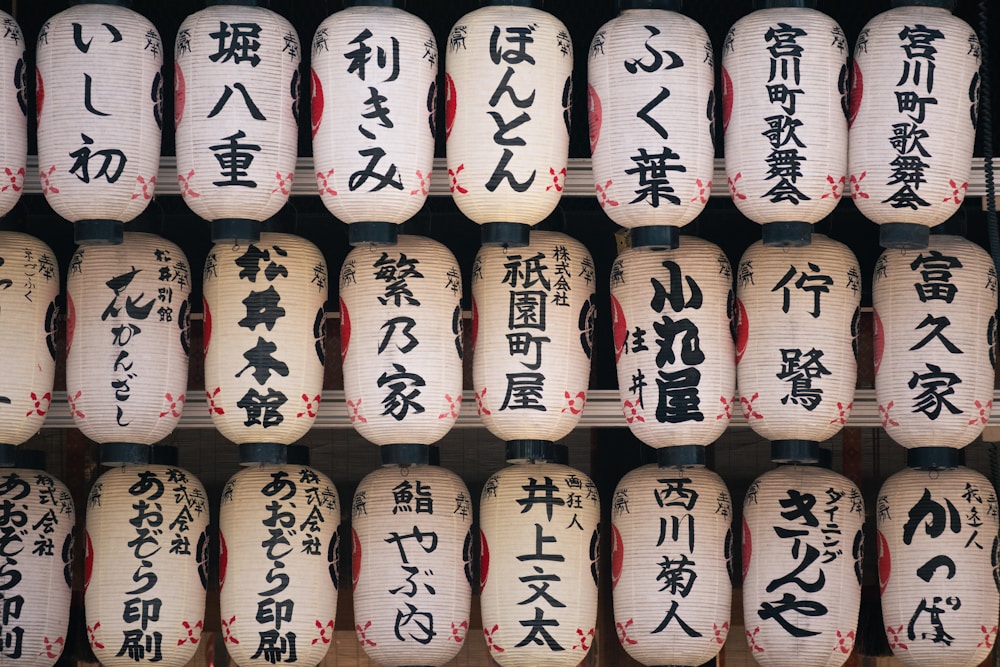 奉
いし初
奉
堀八重
奉
利きみ
奉
ぼんとん
奉
ふく葉
奉
宮川町歌舞会
奉
宮川町歌舞会
奉
奉
別館
花かんざし
奉
松井本館
奉
繁乃家
奉
株式会社
祇園町屋
奉
小丸屋
住井
奉
佇鷺
奉
富久家
奉
株式会社
あおぞら印刷
奉
株式会社
あおぞら印刷
奉
株式会社
あおぞら印刷
奉
鮨やぶ内
奉
狂画人
井上文太
奉
西川菊人
奉
ダイニング
きりんや
奉
我人
かっぽ